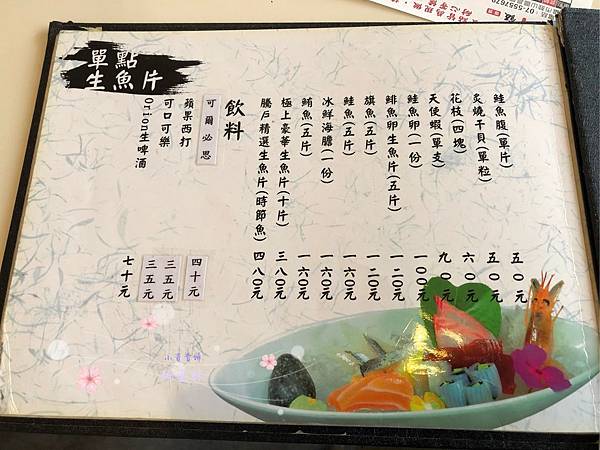 單點
生魚片
鮭魚腹(單片) 五0元
炙燒干貝(單粒) 五0元
花枝(四塊) 六0元
天使蝦(單支) 九0元
鮭魚卵(一份) 一00元
鯡魚卵生魚片(五片) 一二0元
旗魚(五片) 一二0元
鮭魚(五片) 一六0元
冰鮮海膽(一份) 一六0元
鮪魚(五片) 一六0元
極上豪華生魚片(十片) 三八0元
騰戶精選生魚片(時節魚) 四八0元
飲料
可爾必思 四十元
蘋果西打 三五元
可口可樂 三五元
Orion生啤酒 七十元